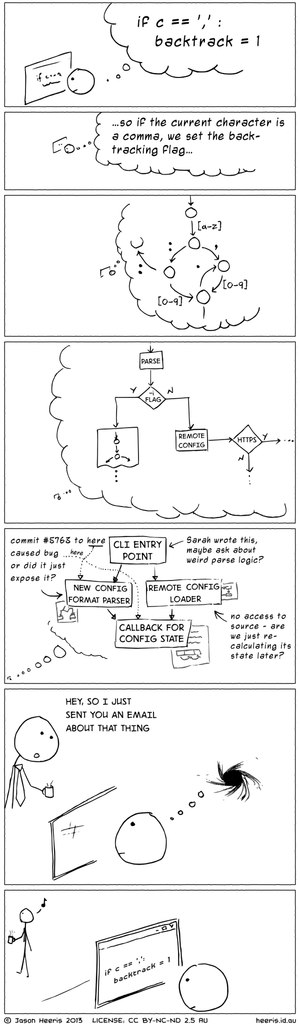 if c == ',' :
backtrack = 1
if c==
...so if the current character
is a comma, we set the back-
tracking flag...
[a-z]
,
[0-9]
[0-9]
PARSE
FLAG
Y
N
REMOTE
CONFIG
HTTPS
Y
N
commit #5763 to here
caused bug
or did it just
expose it?
here
CLI ENTRY
POINT
Sarah wrote this,
maybe ask about
weird parse logic?
NEW CONFIG
FORMAT PARSER
REMOTE CONFIG
LOADER
CALLBACK FOR
CONFIG STATE
no access to
source - are
we just re-
calculating its
state later?
HEY, SO I JUST
SENT YOU AN EMAIL
ABOUT THAT THING
if c == ',':
backtrack = 1
© Jason Heeris 2013 LICENSE: CC BY-NC-ND 2.5 AU heeris.id.au